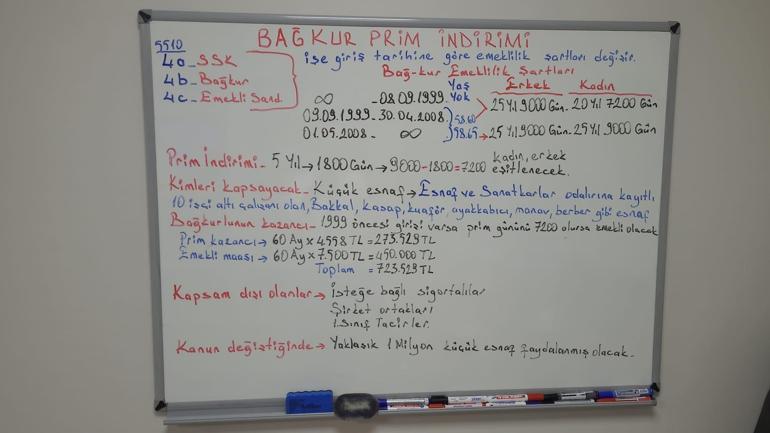 BAĞKUR PRİM İNDİRİMİ
5510
4a-SSK
4b-Bağkur
4c-Emekli Sand.
işe giriş tarihine göre emeklilik şartları değişir.
Bağ-kur Emeklilik Şartları
Yaş Erkek Kadın
∞ - 08.09.1999 Yok 25 Yıl 9000 Gün - 20 Yıl 7200 Gün
09.09.1999 - 30.04.2008 58.60
01.05.2008 - ∞ 58.65 → 25 Yıl 9000 Gün - 25 Yıl 9000 Gün
Prim İndirimi - 5 Yıl → 1800 Gün → 9000-1800=7200 kadın, erkek eşitlenecek.
Kimleri kapsayacak - Küçük esnaf → Esnaf ve Sanatkarlar odalarına kayıtlı
10 işçi altı çalışanı olan, Bakkal, kasap, kuaför, ayakkabıcı, manav, berber gibi esnaf
Bağkurlunun kazancı - 1999 öncesi girişi varsa prim gününü 7200 olursa emekli olacak
Prim kazancı → 60 Ay x 4558 TL = 273.529 TL
Emekli maaşı → 60 Ay x 7.500 TL = 450.000 TL
Toplam = 723.529 TL
Kapsam dışı olanlar → İsteğe bağlı sigortalılar
Şirket ortakları
1.Sınıf Tacirler.
Kanun değiştiğinde → Yaklaşık 1 Milyon küçük esnaf faydalanmış olacak.